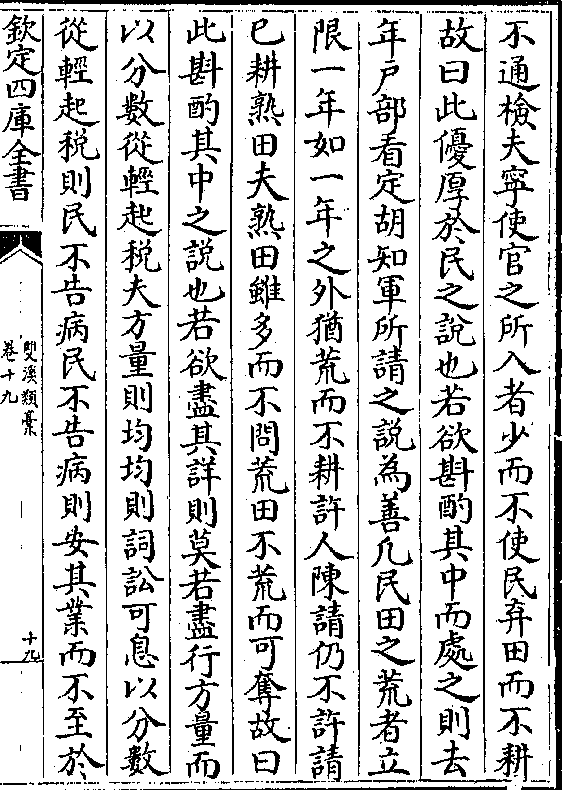 不通檢夫寧使官之所入者少而不使民弃田而不耕
故曰此優厚於民之說也若欲斟酌其中而處之則去
年戸部看定胡知軍所請之說為善凡民田之荒者立
限一年如一年之外猶荒而不耕許人陳請仍不許請
已耕熟田夫熟田雖多而不問荒田不荒而可奪故曰
此斟酌其中之說也若欲盡其詳則莫若盡行方量而
以分數從輕起税夫方量則均均則詞訟可息以分數
從輕起税則民不告病民不告病則安其業而不至於
欽定四庫全書
雙溪類藁
卷十九
十九